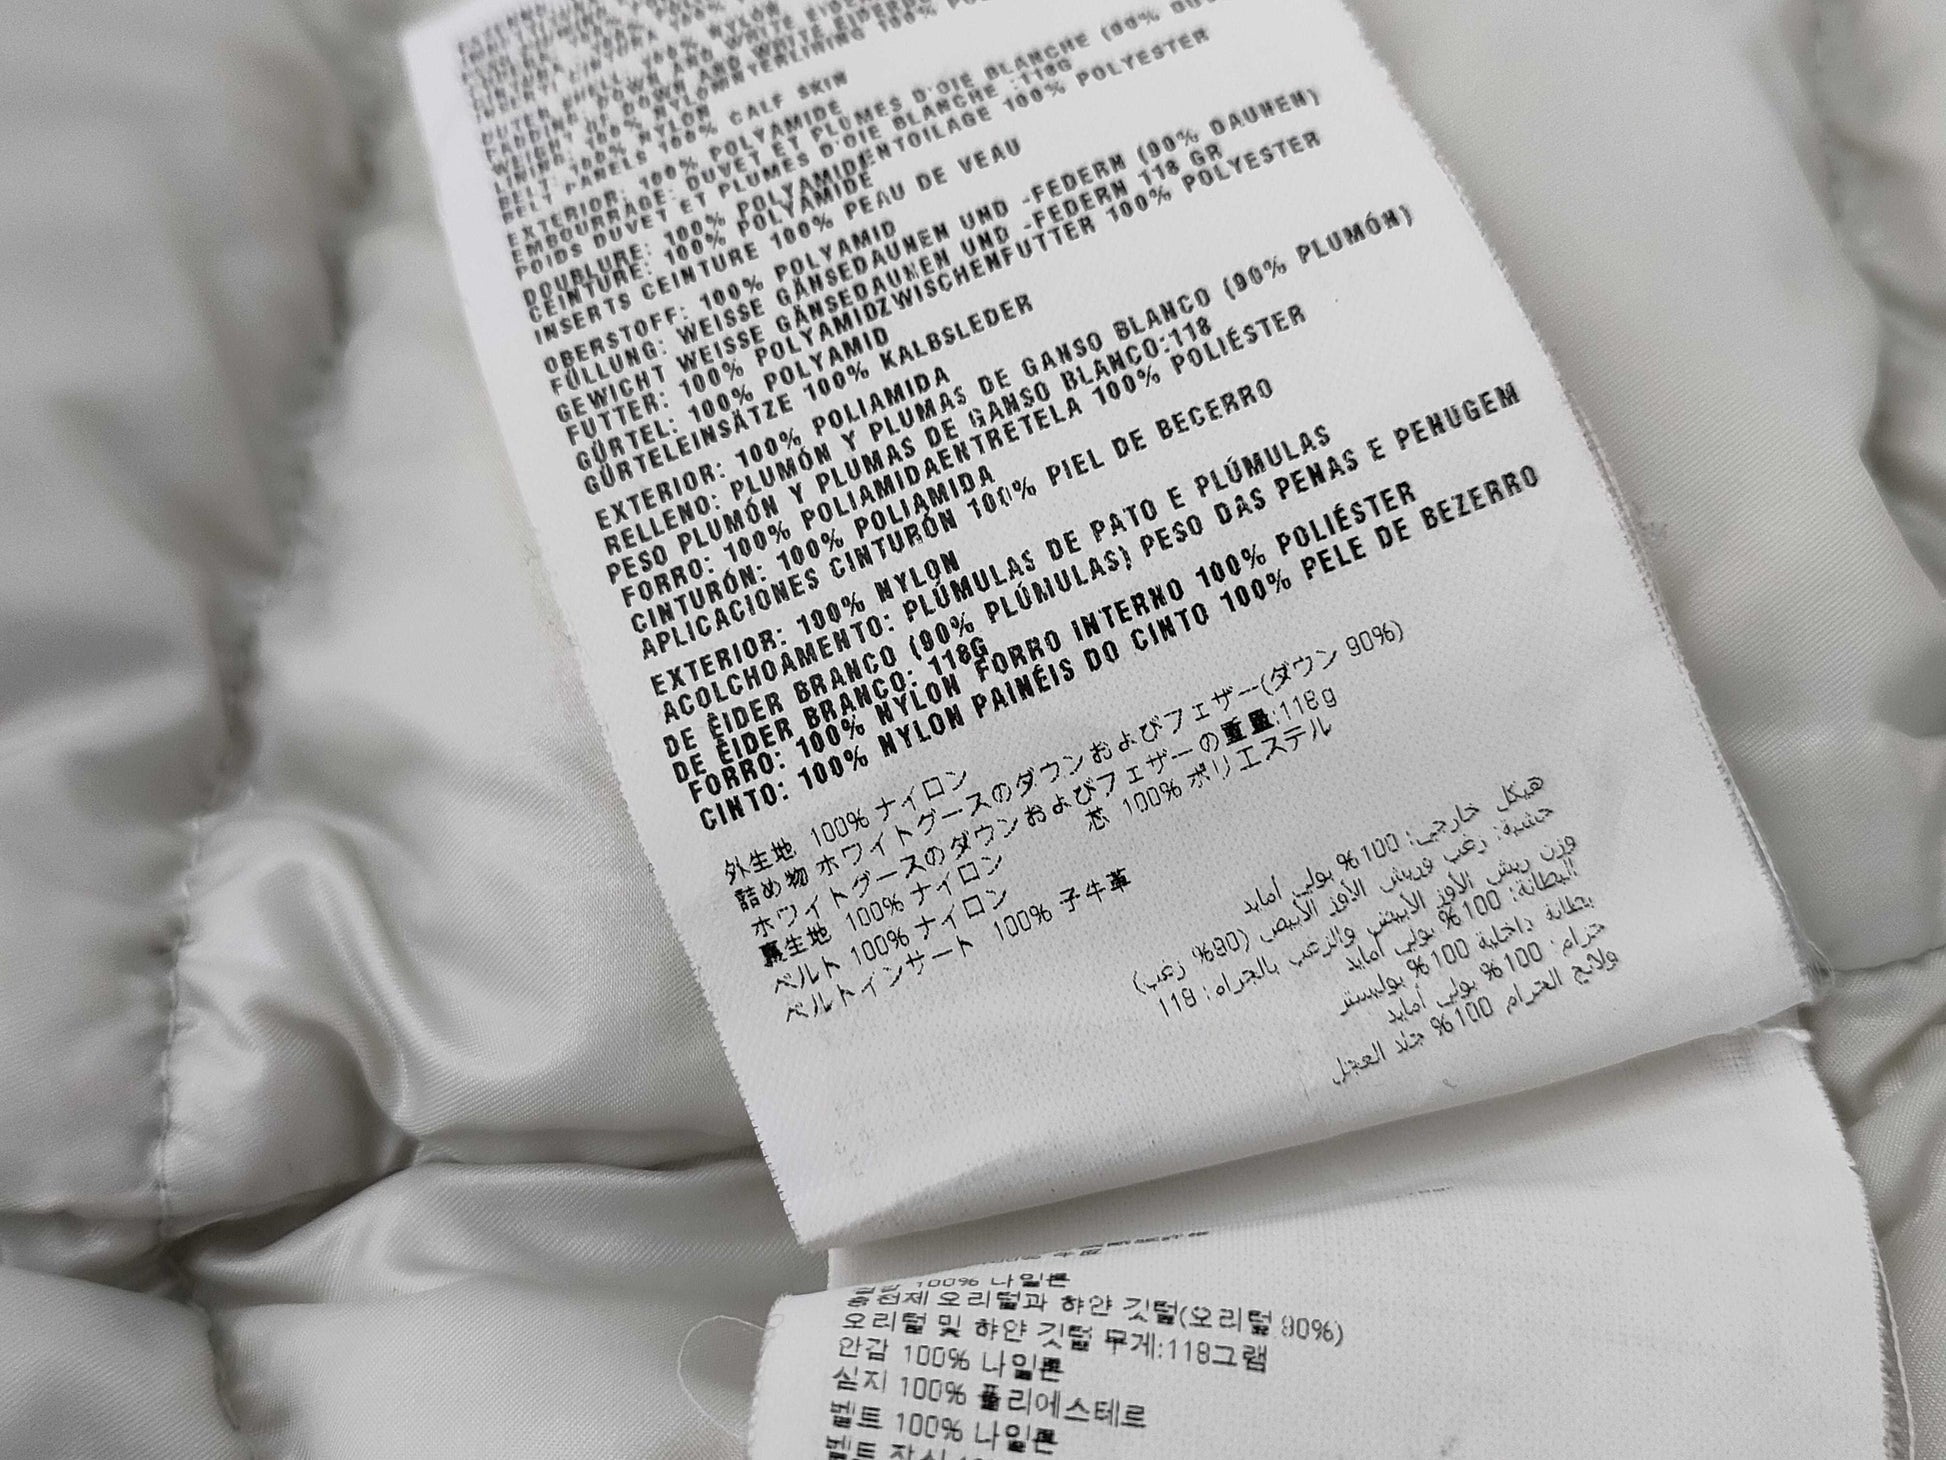 OUTER SHELL: 100% NYLON
LINING: 100% NYLON
BELT: 100% NYLON
BELT PANELS 100% CALF SKIN
EXTERIOR: 100% POLYAMIDE
EMBOURRAGE: DUVET ET PLUMES D'OIE BLANCHE (90%
POIDS DUVET ET PLUMES D'OIE BLANCHE :118G
DOUBLURE: 100% POLYAMIDENTOILAGE 100% POLYESTER
CEINTURE: 100% POLYAMIDE
INSERTS CEINTURE 100% PEAU DE VEAU
OBERSTOFF: 100% POLYAMID
FÜLLUNG: WEISSE GÄNSEDAUNEN UND -FEDERN (90% DAUNEN)
GEWICHT WEISSE GÄNSEDAUNEN UND -FEDERN 118 GR
FUTTER: 100% POLYAMIDZWISCHENFUTTER 100% POLYESTER
GÜRTEL: 100% POLYAMID
GÜRTELEINSÄTZE 100% KALBSLEDER
EXTERIOR: 100% POLIAMIDA
RELLENO: PLUMÓN Y PLUMAS DE GANSO BLANCO (90% PLUMÓN)
PESO PLUMÓN Y PLUMAS DE GANSO BLANCO:118
FORRO: 100% POLIAMIDAENTRETELA 100% POLIÉSTER
CINTURÓN: 100% POLIAMIDA
APLICACIONES CINTURÓN 100% PIEL DE BECERRO
EXTERIOR: 100% NYLON
ACOLCHOAMENTO: PLÚMULAS DE PATO E PLÚMULAS
DE ÊIDER BRANCO (90% PLÚMULAS) PESO DAS PENAS E PENUGEM
DE ÊIDER BRANCO: 118G
FORRO: 100% NYLON FORRO INTERNO 100% POLIÉSTER
CINTO: 100% NYLON PAINÉIS DO CINTO 100% PELE DE BEZERRO
外生地 100% ナイロン
詰め物 ホワイトグースのダウンおよびフェザー(ダウン 90%)
ホワイトグースのダウンおよびフェザーの重量:118g
裏生地 100% ナイロン 芯 100% ポリエステル
ベルト 100% ナイロン
ベルトインサート 100% 子牛革
هيكل خارجي: 100% بولي أمايد
حشية: زغب وريش الأوز الأبيض (90% زغب)
وزن ريش الأوز الأبيض والزغب بالجرام: 118
البطانة: 100% بولي أمايد
بطانة داخلية 100% بوليستر
حزام: 100% بولي أمايد
ولايج الحزام 100% جلد العجل
100% 나일론
충전제 오리털과 햐얀 깃털(오리털 90%)
오리털 및 햐얀 깃털 무게:118그램
안감 100% 나일론
심지 100% 폴리에스테르
벨트 100% 나일론
벨트 장식